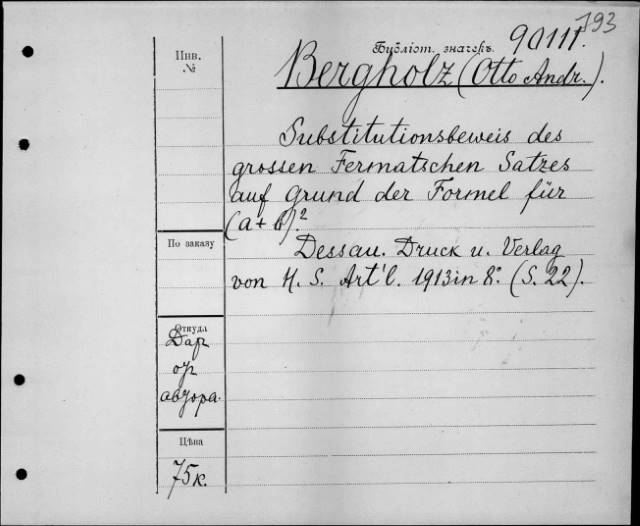 793
Библіот. значекъ. 90111.
Инв.
№
Bergholz (Otto Andr.).
Substitutionsbeweis des
grossen Fermatschen Satzes
auf Grund der Formel für
(a + b).²
По заказу
Dessau. Druck u. Verlag
von H. S. Art'l. 1913 in 8°. (S. 22).
Откуда
Дар
от
автора.
Цѣна
75к.